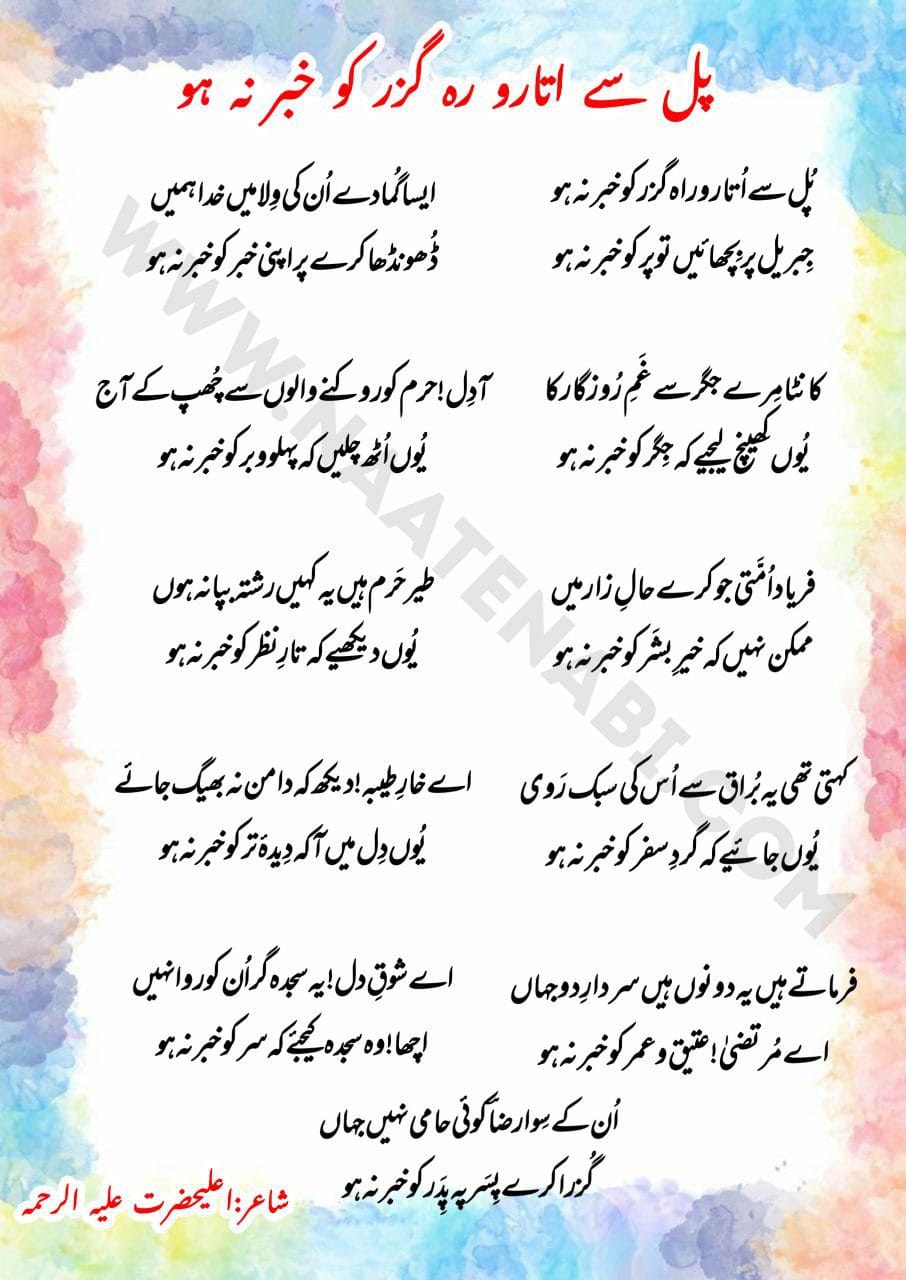 پل سے اتارو رہ گزر کو خبر نہ ہو
پُل سے اُتارو راہ گزر کو خبر نہ ہو
جِبریل پر بِچھائیں تو پر کو خبر نہ ہو
ایسا گُما دے اُن کی وِلا میں خدا ہمیں
ڈُھونڈھا کرے پر اپنی خبر کو خبر نہ ہو
کانٹا مِرے جگر سے غَمِ رُوزگار کا
یُوں کھینچ لیجیے کہ جِگر کو خبر نہ ہو
آ دِل! حرم کو روکنے والوں سے چُھپ کے آج
یُوں اُٹھ چلیں کہ پہلو و بر کو خبر نہ ہو
فریاد اُمَّتی جو کرے حالِ زار میں
ممکن نہیں کہ خیرِ بشَر کو خبر نہ ہو
طیرِ حَرم ہیں یہ کہیں رشتہ بپا نہ ہوں
یُوں دیکھیے کہ تارِ نظر کو خبر نہ ہو
کہتی تھی یہ بُراق سے اُس کی سبک رَوی
یُوں جائیے کہ گردِ سفر کو خبر نہ ہو
اے خارِ طیبہ! دیکھ کہ دامن نہ بھیگ جائے
یُوں دِل میں آ کہ دِیدۂ تر کو خبر نہ ہو
فرماتے ہیں یہ دونوں ہیں سردارِ دو جہاں
اے مُرتضیٰ! عتیق و عمر کو خبر نہ ہو
اے شوقِ دل! یہ سجدہ گر اُن کو روا نہیں
اچھا! وہ سجدہ کیجئے کہ سر کو خبر نہ ہو
اُن کے سِوا رضاؔ کوئی حامی نہیں جہاں
گُزرا کرے پِسَر پہ پِدَر کو خبر نہ ہو
شاعر: اعلیحضرت علیہ الرحمہ
WWW.NAATENABI.COM